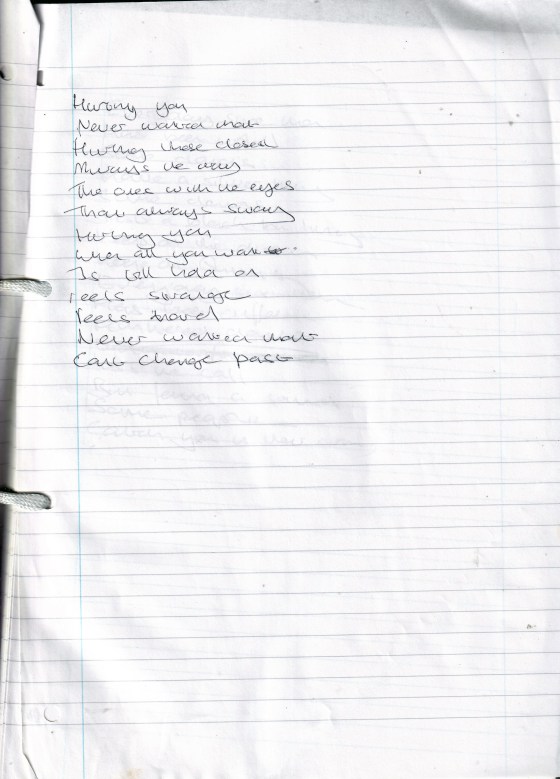 Hurting you
Never wanted that
Hurting those closest
Always the way
The ones with the eyes
That always sway
Hurting you
When all you want
Is hold on
feels strange
feels
Never wanted that
Cant change past